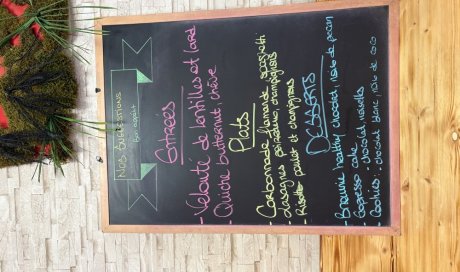 Nos suggestions
Bon appétit
Entrées
- Velouté de lentilles et lard
- Quiche butternut, chèvre
Plats
- Carbonnade flamande, spaghetti
- Lasagnes épinards, champignons
- Risotto poulet et champignons
DESSERTS
- Brownie healthy chocolat, noix de pecan
- Expresso cake
- Cookies : - chocolat noisette
- chocolat blanc, noix de coco